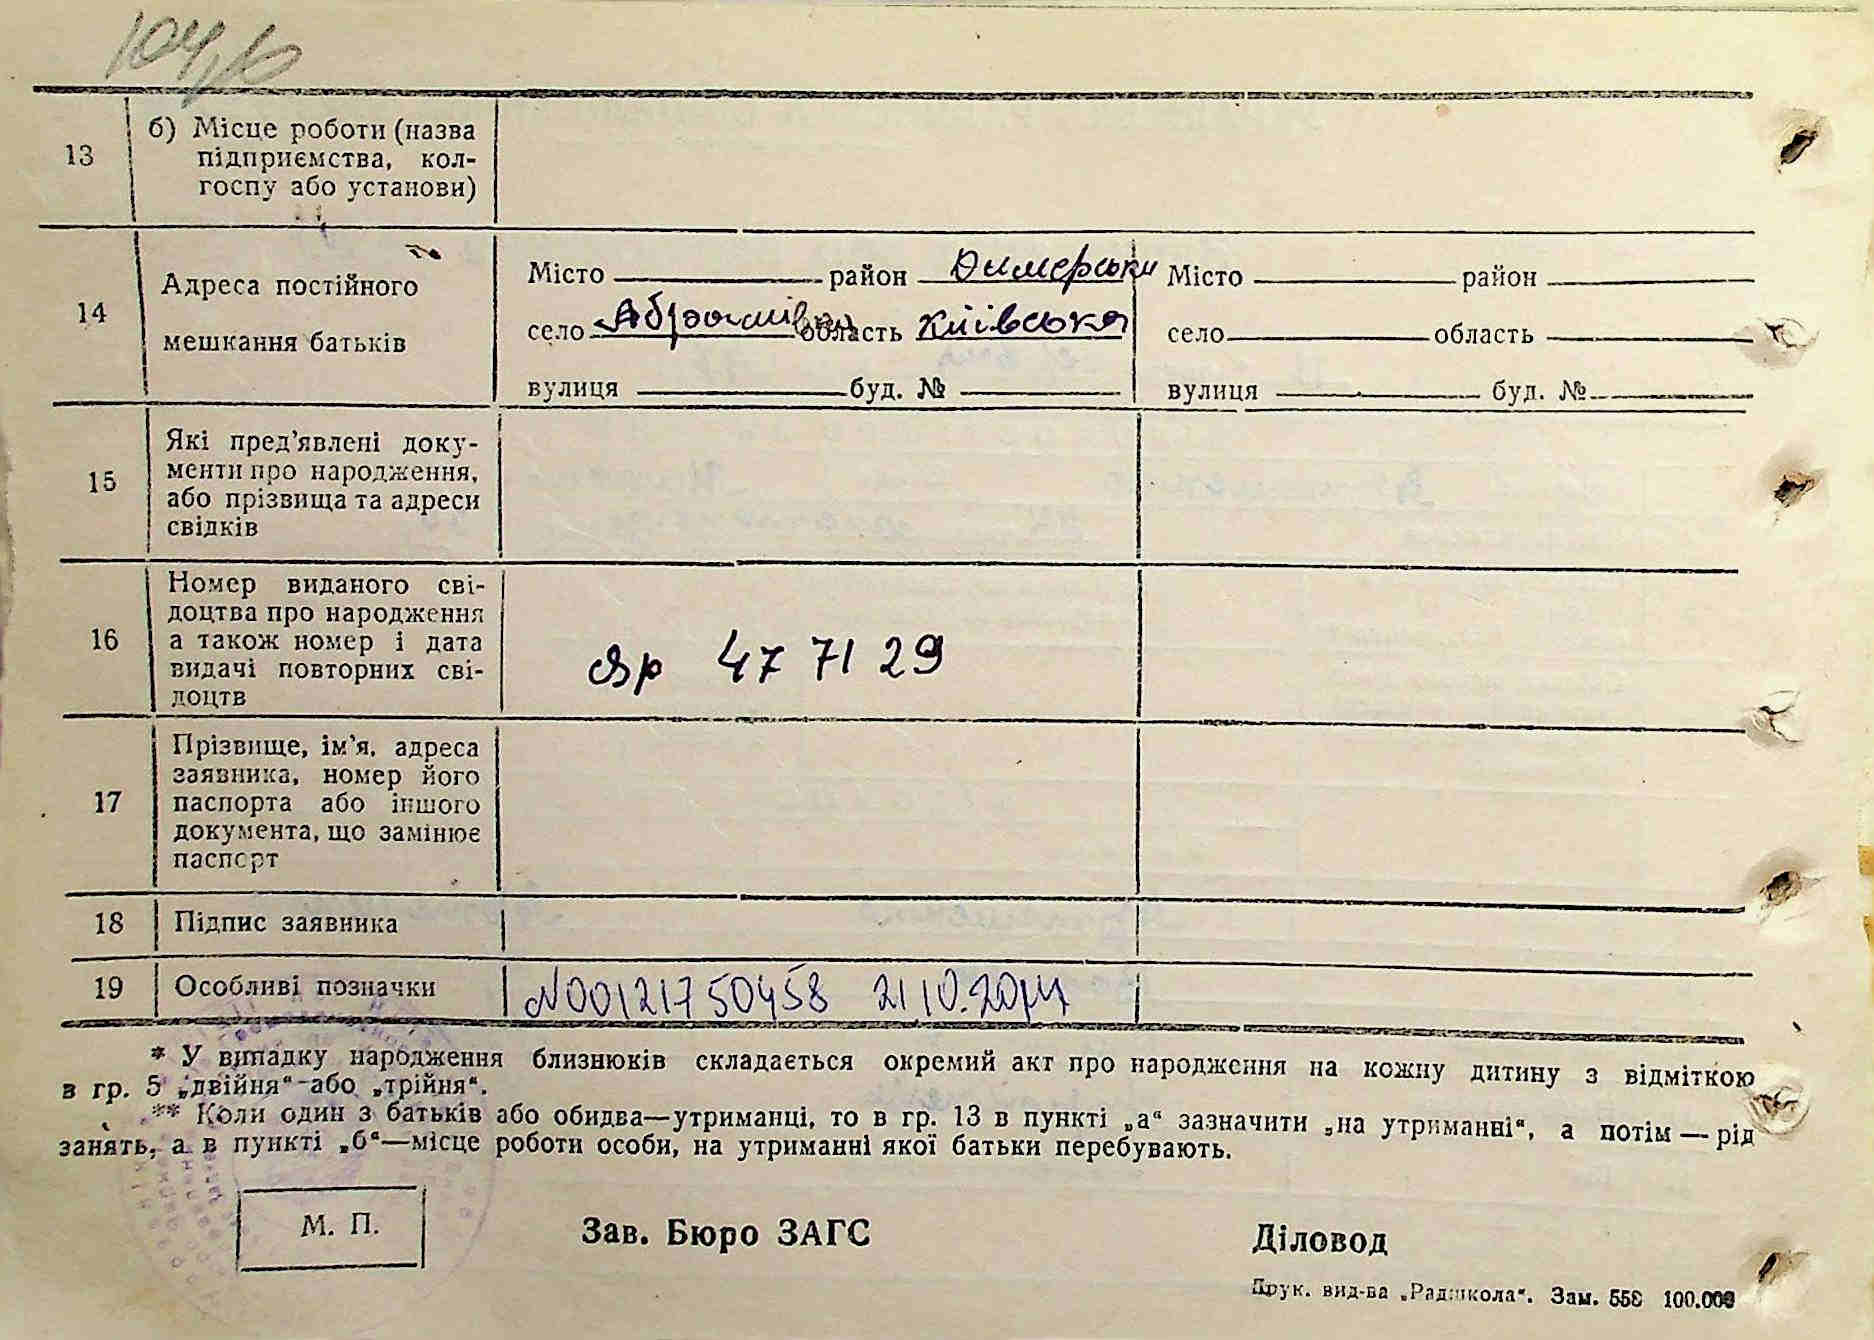 104,10
13 б) Місце роботи (назва
підприємства, кол-
госпу або установи)
14 Адреса постійного
мешкання батьків
Місто район Димерськи Місто район
село область Київська село область
вулиця буд. № вулиця буд. №
15 Які пред’явлені доку-
менти про народження,
або прізвища та адреси
свідків
16 Номер виданого сві-
доцтва про народження
а також номер і дата
видачі повторних сві-
доцтв
Яр 47 71 29
17 Прізвище, ім’я, адреса
заявника, номер його
паспорта або іншого
документа, що замінює
паспорт
18 Підпис заявника
19 Особливі позначки N00121750458 21.10.2014
* У випадку народження близнюків складається окремий акт про народження на кожну дитину з відміткою
в гр. 5 „двійня“ або „трійня“.
** Коли один з батьків або обидва—утриманці, то в гр. 13 в пункті „а“ зазначити „на утриманні“, а потім — рід
занять, а в пункті „б“—місце роботи особи, на утриманні якої батьки перебувають.
М. П. Зав. Бюро ЗАГС Діловод
Друк. вид-ва „Радшкола“. Зам. 558 100.000